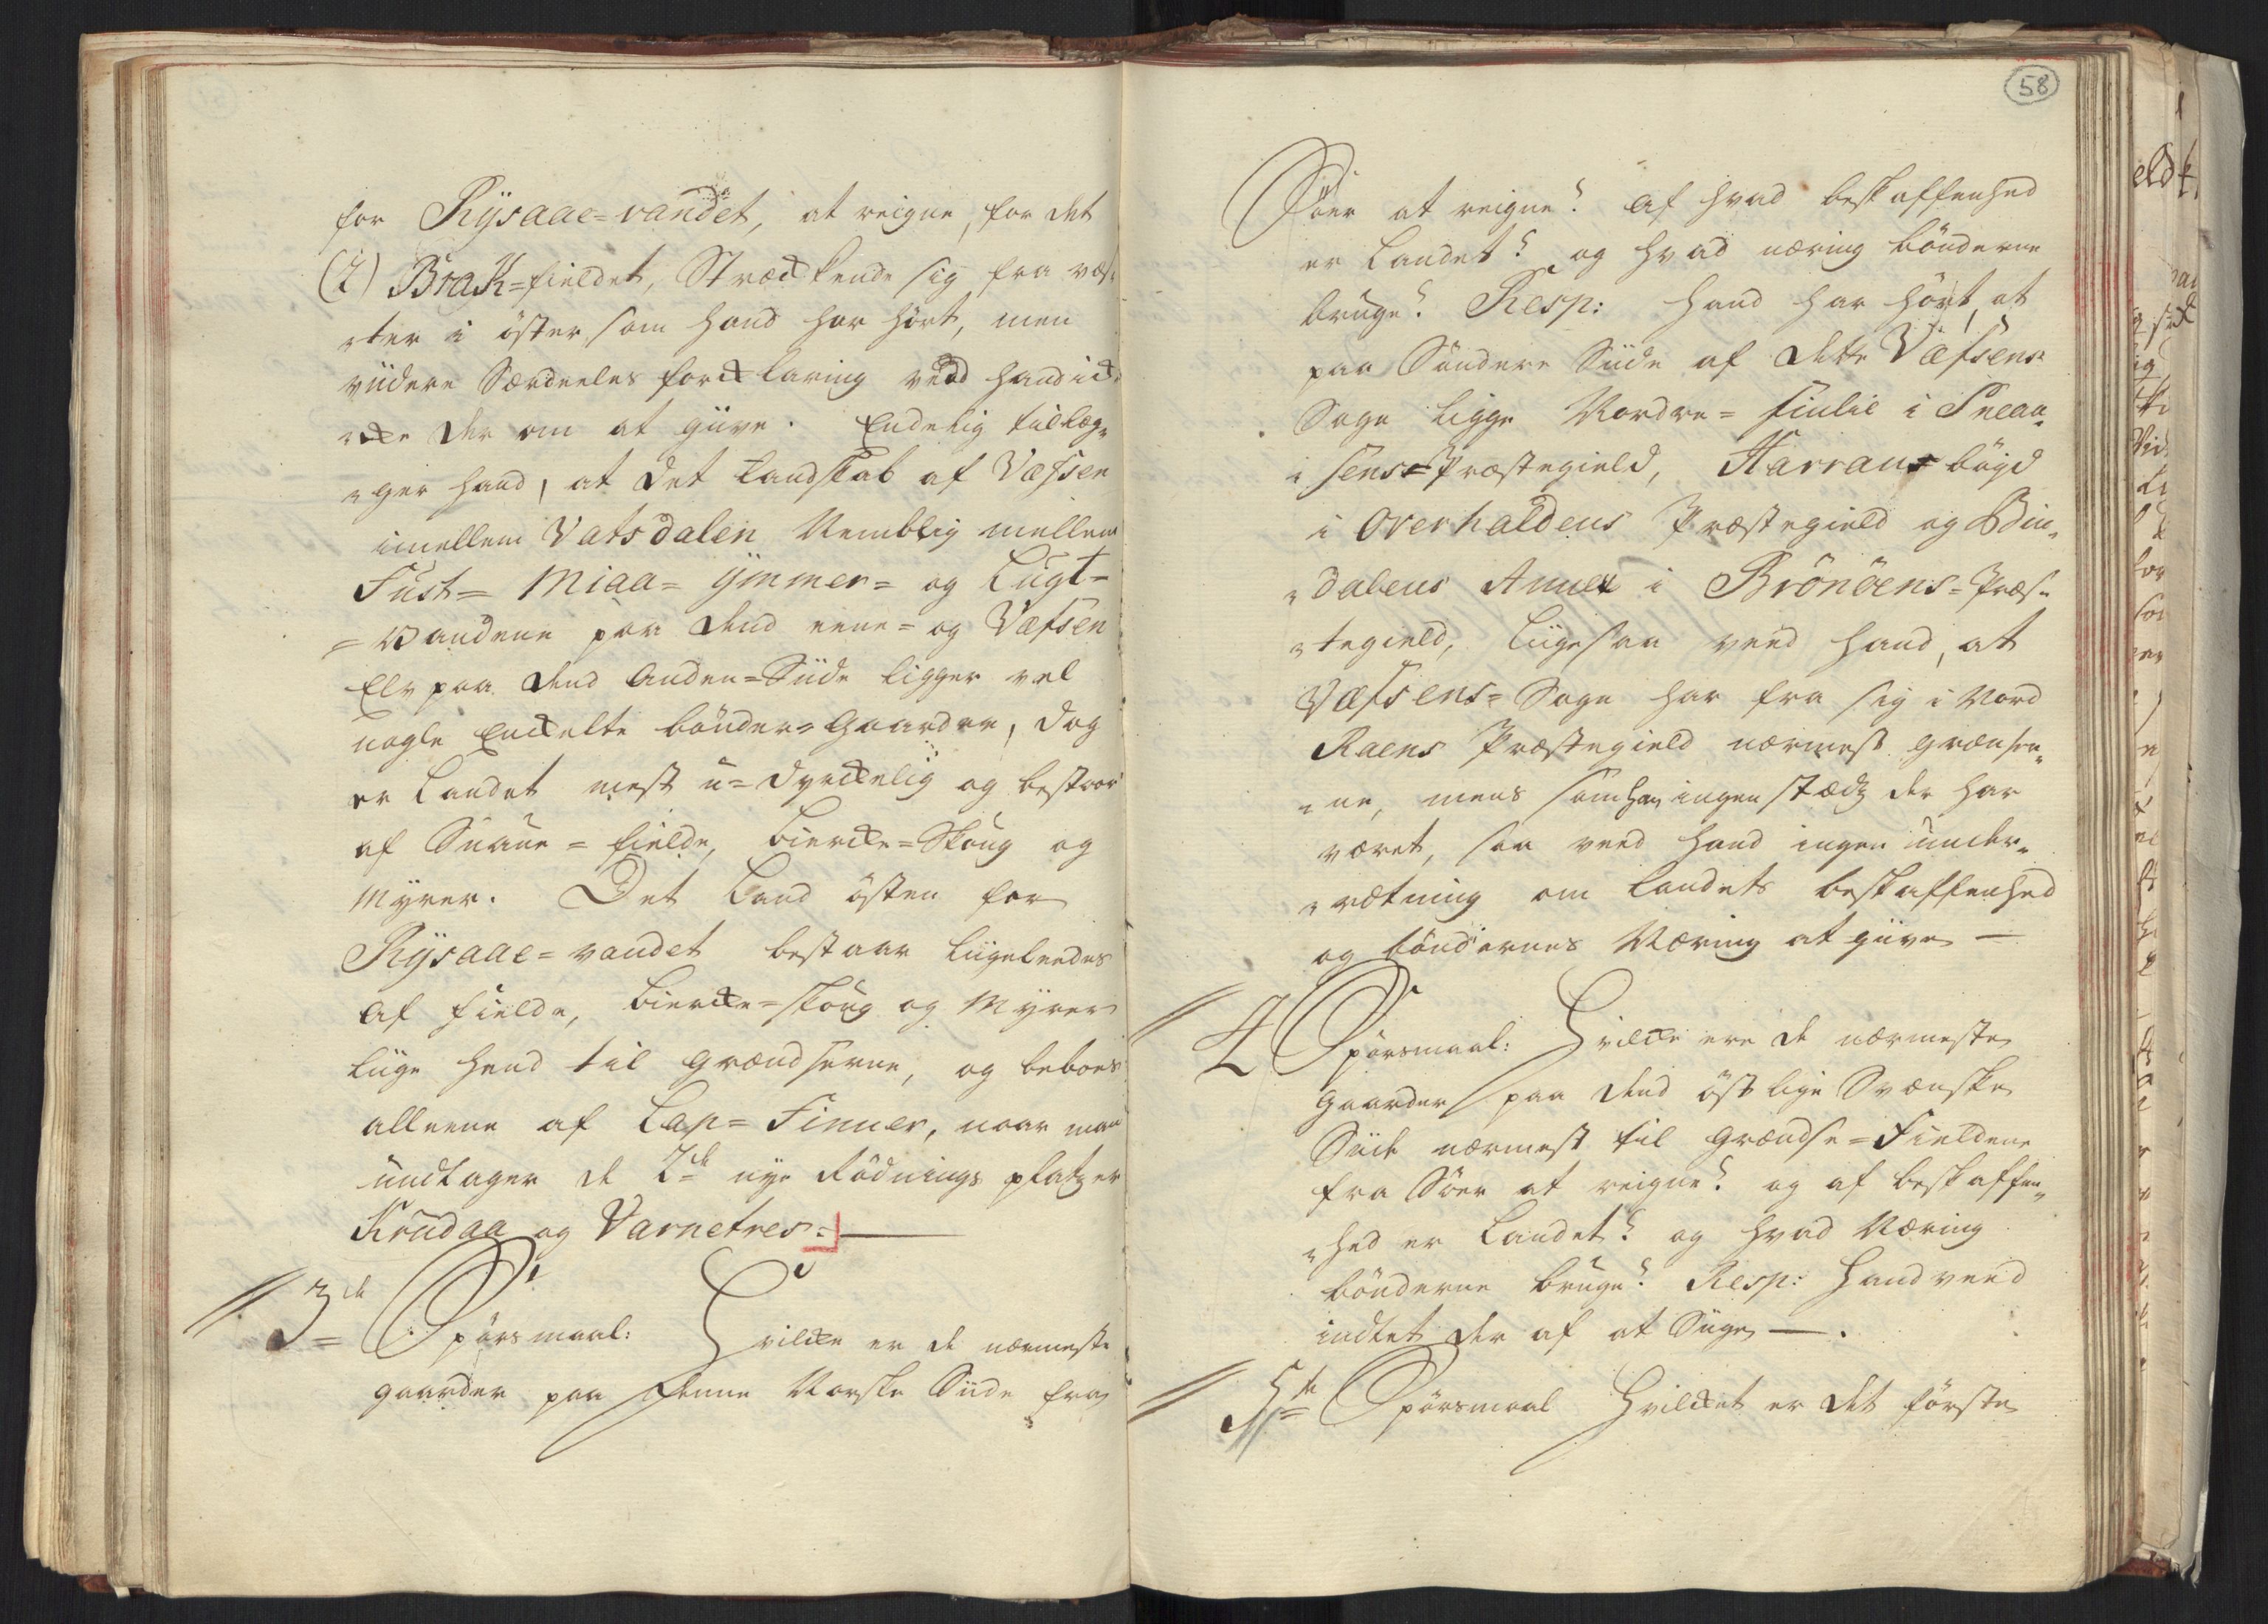 for Rÿsaae=vandet, at reigne, for det
(2) Brak=fieldet, Streckende sig fra væs„
„ter i öster, som hand har hört, men
viidere Særdeeles forcklaring veed hand ick„
„cke der om at giive. Endelig tillæg„
„ger hand, at det Landskab af Væfsen
imellem Vatsdalen Nemblig mellem
Fust= Miaa= ÿmmer= og Lugt=
=Vandene paa dend eene= og Væfsen
Elv paa dend Anden=Siide ligger vel
nogle Enckelte bönder=Gaarder, dog
er Landet mest u=dyrckelig og bestaar
af Snaue=fielde, Biercke=Skoug og
Myrer. Det Land östen for
Rÿsaae=vandet bestaar liigeleedes
af fielde, Biercke=skoug og Myrer
liige hend til grændserne, og beboes
alleene af Lap=Finner, naar man
undtager de 2de nye Rödnings platzer
Krudaa og Varnetres.
3de Spörsmaal: Hvilcke er de nærmeste
gaarder paa denne Norske Siide fra
58
Söer at reigne? af hvad beskaffenhed
er Landet? og hvad næring bönderne
bruge? Resp: Hand har hört, at
paa Söndere Siide af dette Væfsens
Sogn ligge Nordre=Fiulie i Sneaa„
„sens=Præstegield, Harrans bögd
i Overhaldens Præstegield og Bin„
„dalens Annex i Brönöens=Præs„
„tegield, liigesaa veed hand, at
Væfsens=Sogn har fra sig i Nord
Raens Præstegield nærmest grænser„
„ne, mens som han ingen stædz der har
været, saa veed hand ingen under„
„rætning om Landets beskaffenhed
og böndernes Næring at giive —
4 Spörsmaal: Hvilcke ere de nærmeste
gaarder paa dend östlige Svænske
Siide nærmest til Grændse=Fieldene
fra Söer at reigne? og af beskaffen„
„hed er Landet? og hvad Næring
bönderne bruge? Resp: Hand veed
indtet der af at Siige —.
5te Spörsmaal Hvilcket er det förste